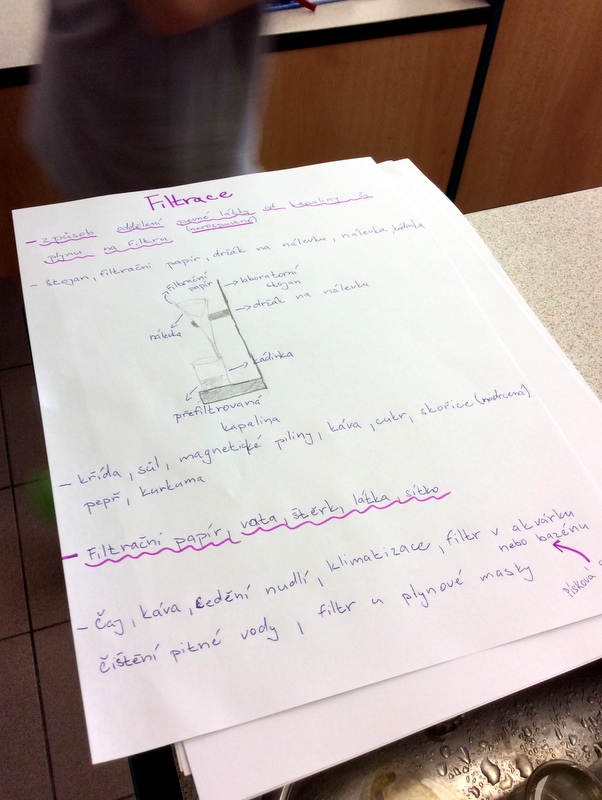 Filtrace
- způsob oddělení pevné látky od kapaliny či
(nerozpuštěné)
plynu na filtru
- stojan, filtrační papír, držák na nálevku, nálevka, kádinka
filtrační papír
laboratorní stojan
držák na nálevku
nálevka
kádinka
přefiltrovaná
kapalina
- křída, sůl, magnetické piliny, káva, cukr, skořice (mletá)
pepř, kurkuma
- Filtrační papír, vata, štěrk, látka, sítko
- čaj, káva, cedění nudlí, klimatizace, filtr v akváriu
nebo bazénu
písková
čištění pitné vody, filtr u plynové masky